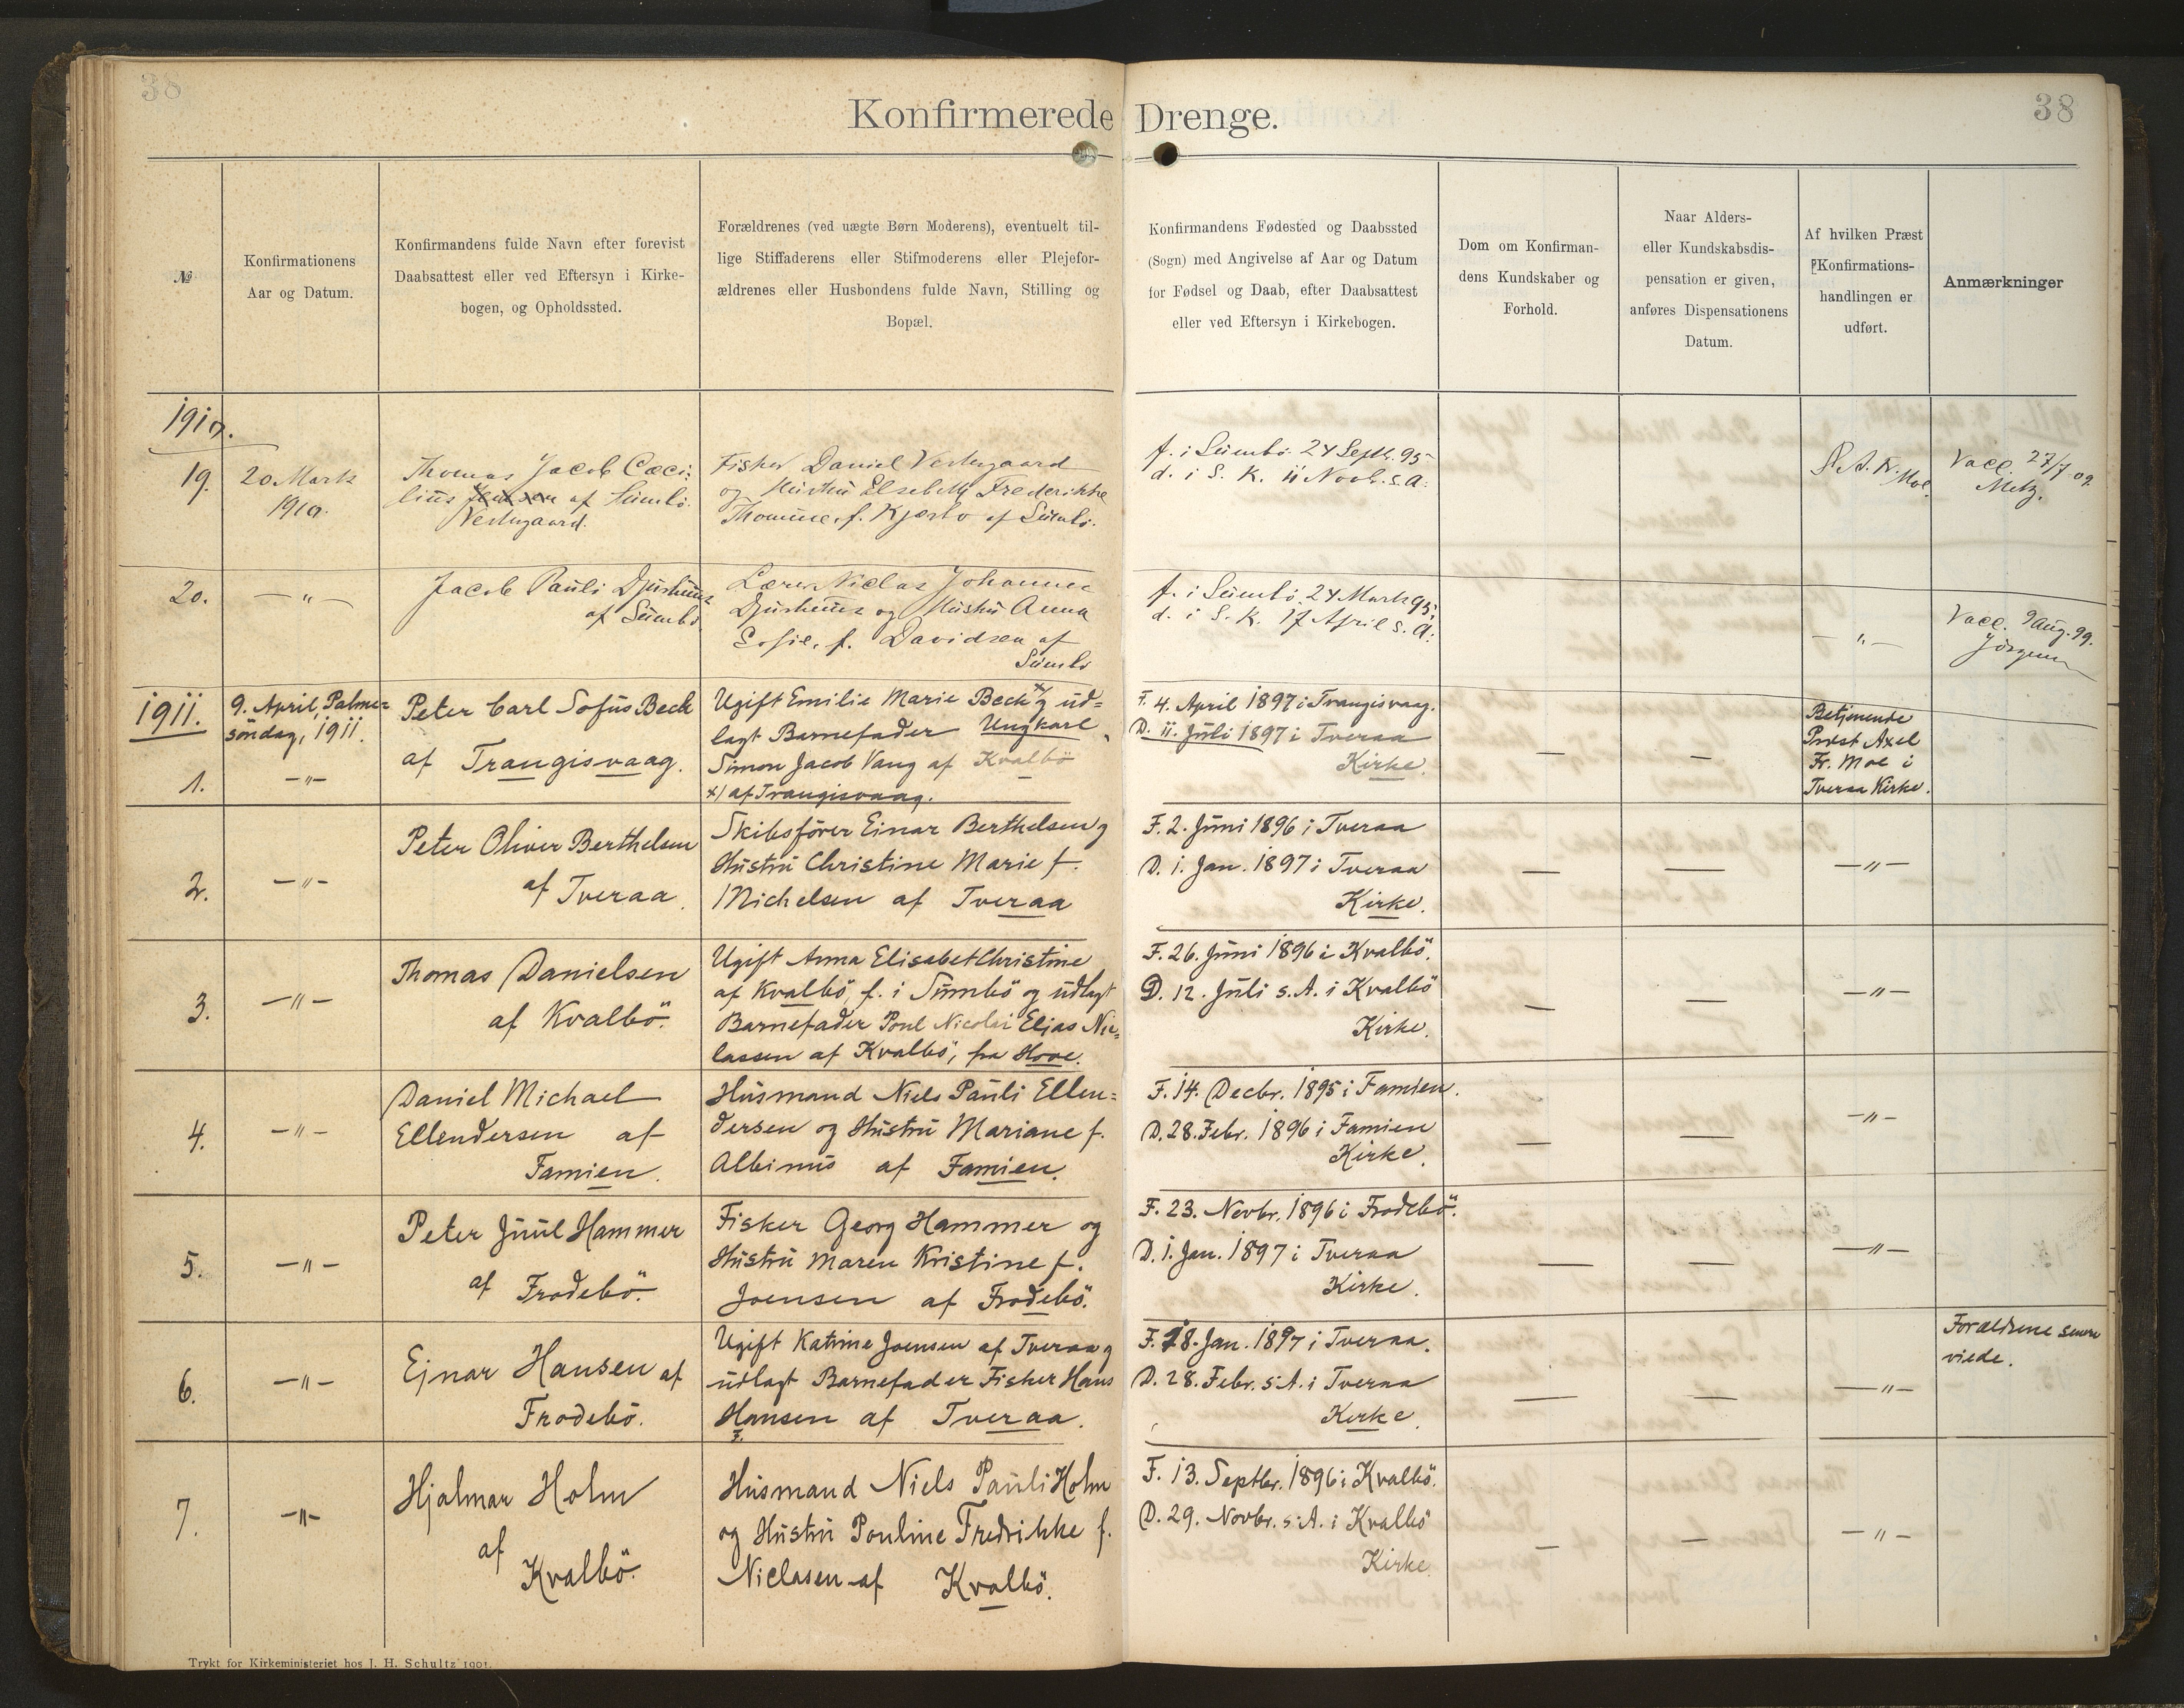 38
38
Konfirmerede Drenge.
№
Konfirmationens
Aar og Datum.
Konfirmandens fulde Navn efter forevist
Daabsattest eller ved Eftersyn i Kirke-
bogen, og Opholdssted.
Forældrenes (ved uægte Børn Moderens), eventuelt til-
lige Stiffaderens eller Stifmoderens eller Plejefor-
ældrenes eller Husbondens fulde Navn, Stilling og
Bopæl.
Konfirmandens Fødested og Daabssted
(Sogn) med Angivelse af Aar og Datum
for Fødsel og Daab, efter Daabsattest
eller ved Eftersyn i Kirkebogen.
Dom om Konfirman-
dens Kundskaber og
Forhold.
Naar Alders-
eller Kundskabsdis-
pensation er given,
anføres Dispensationens
Datum.
Af hvilken Præst
Konfirmations-
handlingen er
udført.
Anmærkninger
1910.
19.
20 Marts
1910.
Thomas Jacob Cæci-
lius Jensen af Sümbö.
Vestergaard.
Fisker Daniel Vestergaard
og Hüstrü Elsebeth Frederikke
Thomine, f. Kjærbo af Sümbö.
f. i Sümbö 24 Septb. 95
d. i S. K. 11 Novb. s. A.
A. Fr. Moe.
Vacc. 27/7 09.
Metz.
20.
—"—
Jacob Pauli Djurhuus
af Sümbö.
Lærer Niclas Johannes
Djurhuus og Hüstrü Anna
Sofie, f. Davidsen af
Sümbö
f. i Sümbö 24 Marts 95,
d. i S. K. 17 April s. A.
—"—
Vacc. 9 Aug. 99.
Jörgensen
1911.
9. April, Palme=
söndag, 1911.
1.
—"—
Peter Carl Sofüs Beck
af Trangisvaag.
Ugift Emilie Marie Beck x/ og üd=
lagt Barnefader Ungkarl
Simon Jacob Vang af Kvalbö
x/ af Trangisvaag.
F. 4. April 1897 i Trangisvaag.
D. 11. Jüli 1897 i Tveraa
Kirke.
—
—
Betjenende
Præst Axel
Fr. Moe i
Tveraa Kirke.
2.
—"—
Peter Oliver Berthelsen
af Tveraa.
Skibsförer Einar Berthelsen og
Hüstrü Christine Marie f.
Michelsen af Tveraa
F. 2. Jüni 1896 i Tveraa
D. 1. Jan. 1897 i Tveraa
Kirke.
—
—
—"—
3.
—"—
Thomas Danielsen
af Kvalbö.
Ugift Anna Elisabet Christine
af Kvalbö, f. i Sümbö og üdlagt
Barnefader Poul Nicolai Elias Nic=
lassen af Kvalbö, fra Hove.
F. 26. Jüni 1896 i Kvalbö.
D. 12. Jüli s. A. i Kvalbö
Kirke.
—
—
—"—
4.
—"—
Daniel Michael
Ellendersen af
Famien.
Hüsmand Niels Paüli Ellen=
dersen og Hüstrü Mariane f.
Albinüs af Famien.
F. 14. Decbr. 1895 i Famien.
D. 28. Febr. 1896 i Famien
Kirke.
—
—
—"—
5.
—"—
Peter Jüül Hammer
af Frodebö.
Fisker Georg Hammer og
Hüstrü Maren Kristine f.
Joensen af Frodebö.
F. 23. Novbr. 1896 i Frodebö.
D. 1. Jan. 1897 i Tveraa
Kirke.
—
—
—"—
6.
—"—
Ejnar Hansen af
Frodebö.
Ugift Katrine Joensen af Tveraa og
üdlagt Barnefader Fisker Hans
Hansen af Tveraa.
F. 18. Jan. 1897 i Tveraa.
D. 28. Febr. s. A. i Tveraa
Kirke.
—
—
—"—
Forældrene senere
viede.
7.
—"—
Hjalmar Holm
af
Kvalbö.
Hüsmand Niels Paüli Holm
og Hüstrü Pouline Fredrikke f.
Niclasen af Kvalbö.
F. 13. Septbr. 1896 i Kvalbö.
D. 29. Novbr. s. A. i Kvalbö
Kirke.
—
—
—"—
Trykt for Kirkeministeriet hos J. H. Schultz 1901.